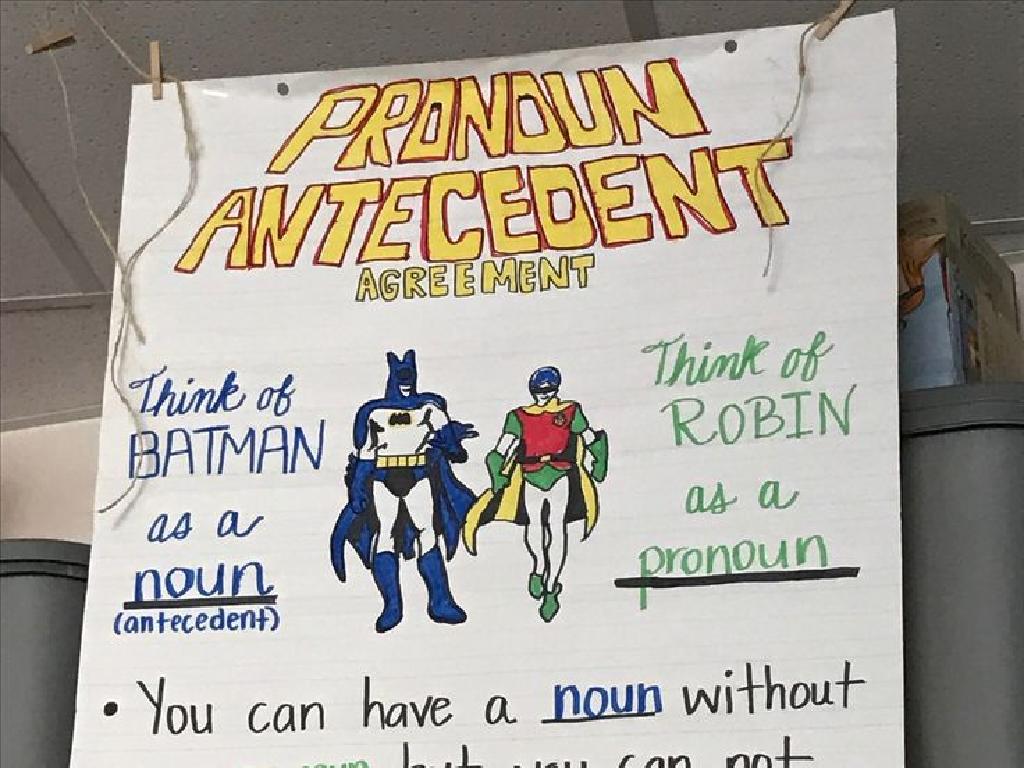 PRONOUN
ANTECEDENT
AGREEMENT
Think of
BATMAN
as a
noun
(antecedent)
Think of
ROBIN
as a
pronoun
• You can have a noun without
but you can not